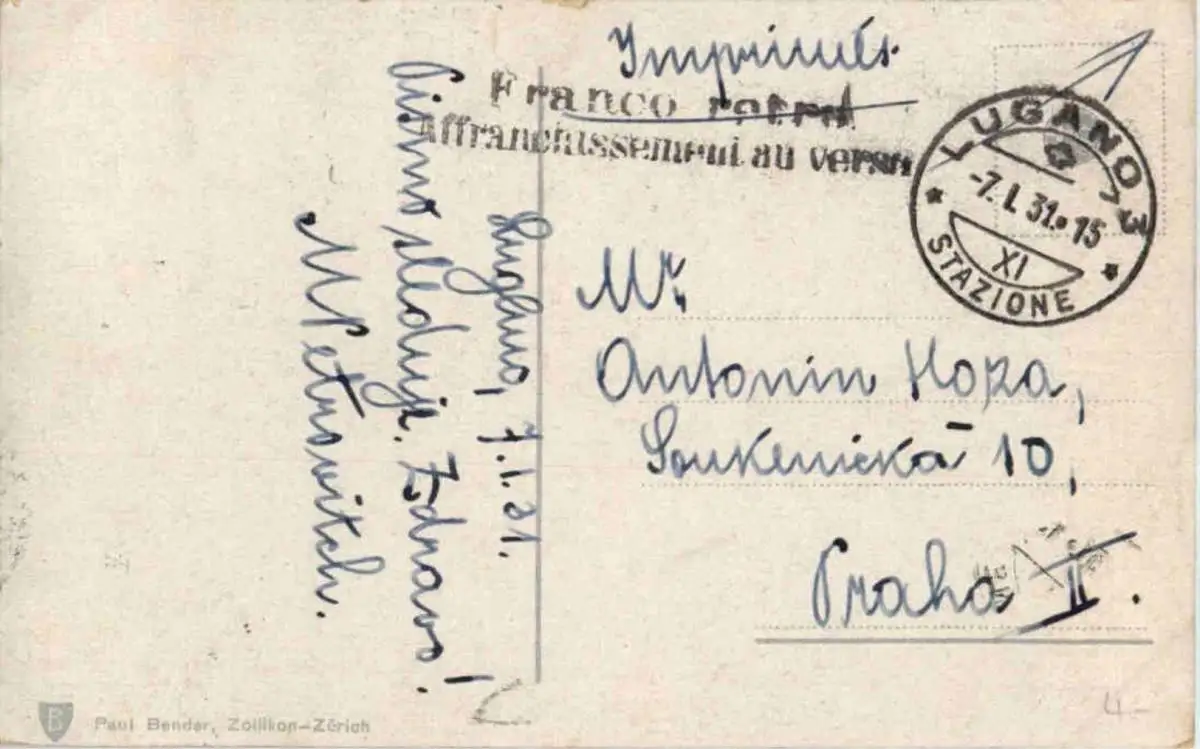 Imprimés
Franco retro
Affranchissement au verso
LUGANO 3
-7.I.31.-15
XI
STAZIONE
Lugano, 7.1.31.
Pismo sleduje. Zdravo!
MPetrovitch.
Mr.
Antonin Hoza,
Soukenická 10,
Praha II.
Paul Bender, Zollikon-Zürich
B
4-